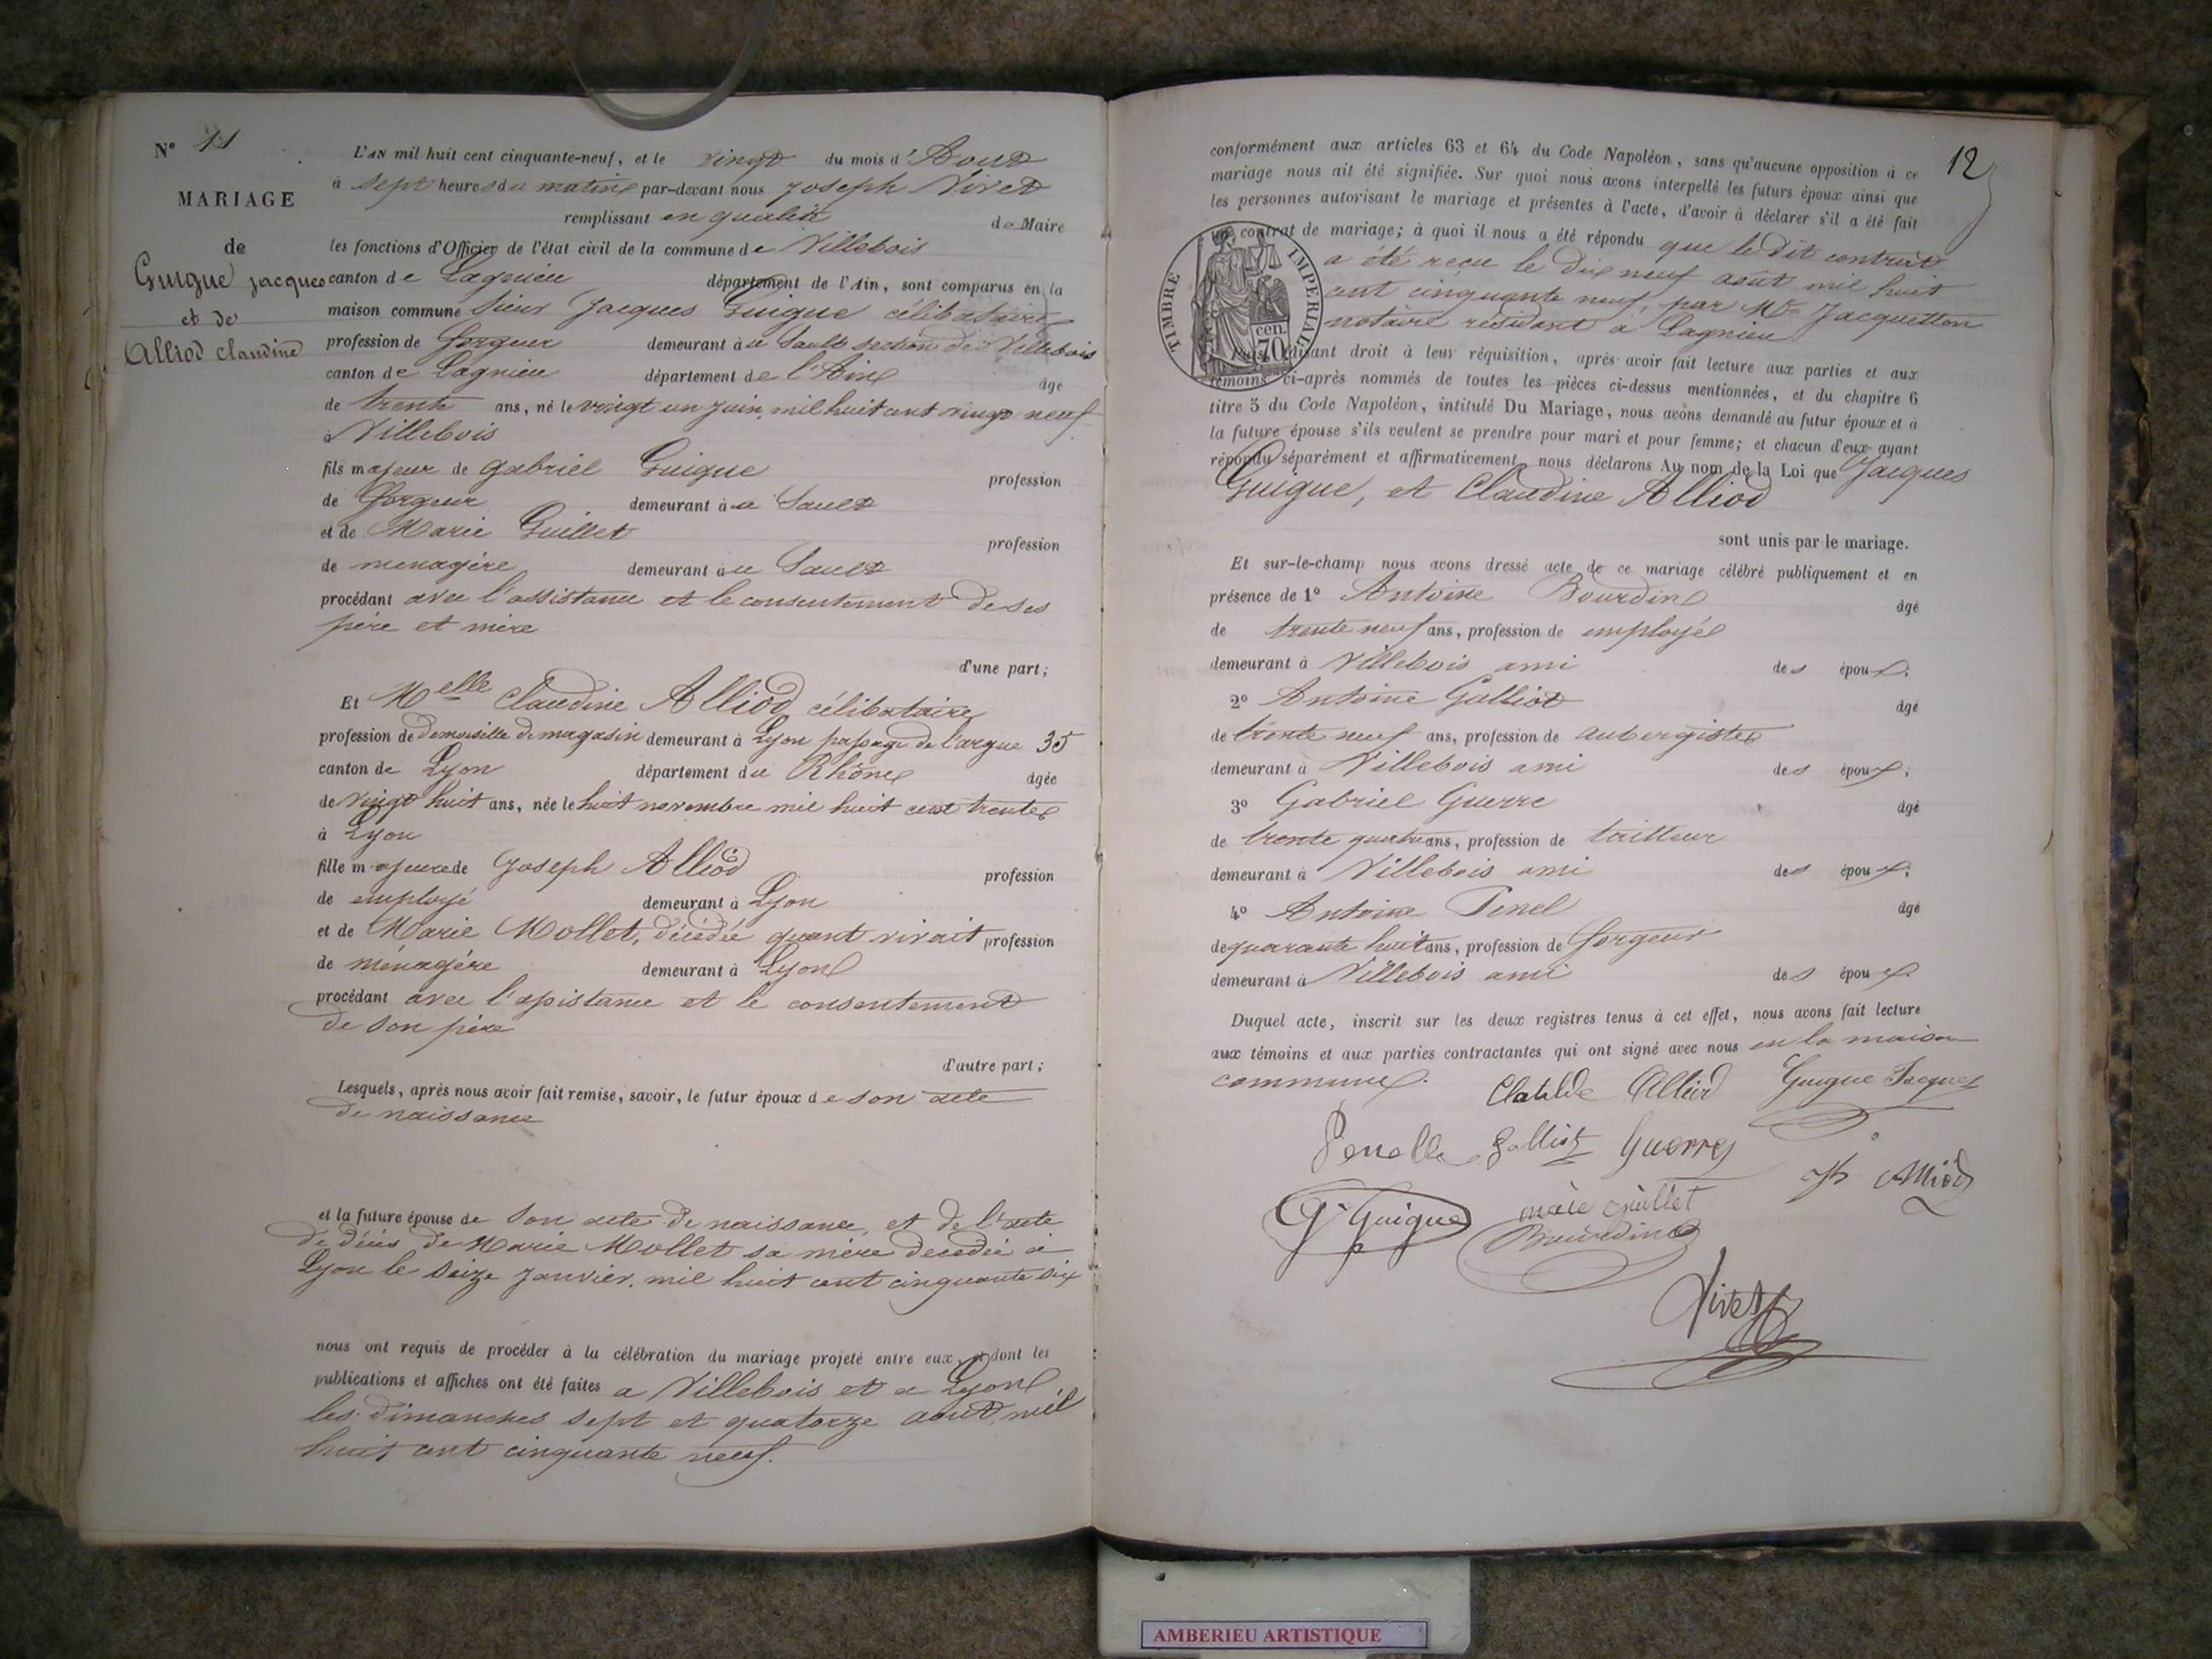 N° 11
MARIAGE
de
Guigue Jacques
et de
Alliod Claudine
L'AN mil huit cent cinquante-neuf, et le vingt du mois d'Aout
à sept heures du matin par-devant nous Joseph Vivet
remplissant en qualité de Maire
les fonctions d'Officier de l'état civil de la commune de Villebois
canton de Lagnieu département de l'Ain, sont comparus en la
maison commune Sieur Jacques Guigue célibataire
profession de forgeur demeurant à u Sault section de Villebois
canton de Lagnieu département de l'Ain âgé
de trente ans, né le vingt un juin, mil huit cent vingt neuf
à Villebois
fils majeur de Gabriel Guigue profession
de forgeur demeurant à u Sault
et de Marie Guillet profession
de menagère demeurant à u Sault
procédant avec l'assistance et le consentement de ses
père et mère
d'une part;
Et Melle Claudine Alliod célibataire
profession de demoiselle de magasin demeurant à Lyon passage de l'argue 35
canton de Lyon département du Rhône âgée
de vingt huit ans, née le huit novembre mil huit cent trente
à Lyon
fille majeure de Joseph Alliod profession
de employé demeurant à Lyon
et de Marie Mollet, décédée quant vivait profession
de ménagère demeurant à Lyon
procédant avec l'assistance et le consentement
de son père
d'autre part;
Lesquels, après nous avoir fait remise, savoir, le futur époux de son acte
de naissance
et la future épouse de son acte de naissance, et de l'acte
de décès de Marie Mollet sa mère decedée à
Lyon le seize janvier, mil huit cent cinquante six
nous ont requis de procéder à la célébration du mariage projeté entre eux, et dont les
publications et affiches ont été faites a Villebois et a Lyon
les dimanches sept et quatorze aout, mil
huit cent cinquante neuf.
12
conformément aux articles 63 et 64 du Code Napoléon, sans qu'aucune opposition à ce
mariage nous ait été signifiée. Sur quoi nous avons interpellé les futurs époux ainsi que
les personnes autorisant le mariage et présentes à l'acte, d'avoir à déclarer s'il a été fait
un contrat de mariage; à quoi il nous a été répondu que le dit contrat
a été reçu le dix neuf août mil huit
cent cinquante neuf, par Me Jacquetton
notaire résidant à Lagnieu
TIMBRE IMPERIAL
cen.
70
faisant droit à leur réquisition, après avoir fait lecture aux parties et aux
témoins ci-après nommés de toutes les pièces ci-dessus mentionnées, et du chapitre 6
titre 5 du Code Napoléon, intitulé Du Mariage, nous avons demandé au futur époux et à
la future épouse s'ils veulent se prendre pour mari et pour femme; et chacun d'eux ayant
répondu séparément et affirmativement, nous déclarons Au nom de la Loi que Jacques
Guigue, et Claudine Alliod
sont unis par le mariage.
Et sur-le-champ nous avons dressé acte de ce mariage célébré publiquement et en
présence de 1° Antoine Bourdin âgé
de trente neuf ans, profession de employé
demeurant à Villebois ami des époux;
2° Antoine Galliot âgé
de trente neuf ans, profession de aubergiste
demeurant à Villebois ami des époux;
3° Gabriel Guerre âgé
de trente quatre ans, profession de tailleur
demeurant à Villebois ami des époux;
4° Antoine Penel âgé
de quarante huit ans, profession de forgeur
demeurant à Villebois ami des époux
Duquel acte, inscrit sur les deux registres tenus à cet effet, nous avons fait lecture
aux témoins et aux parties contractantes qui ont signé avec nous en la maison
commune.
Clotilde Alliod Guigue Jacques
Penelle Galliot Guerre Jh Alliod
G. Guigue marie guillet
Bourdin
Vivet
AMBERIEU ARTISTIQUE